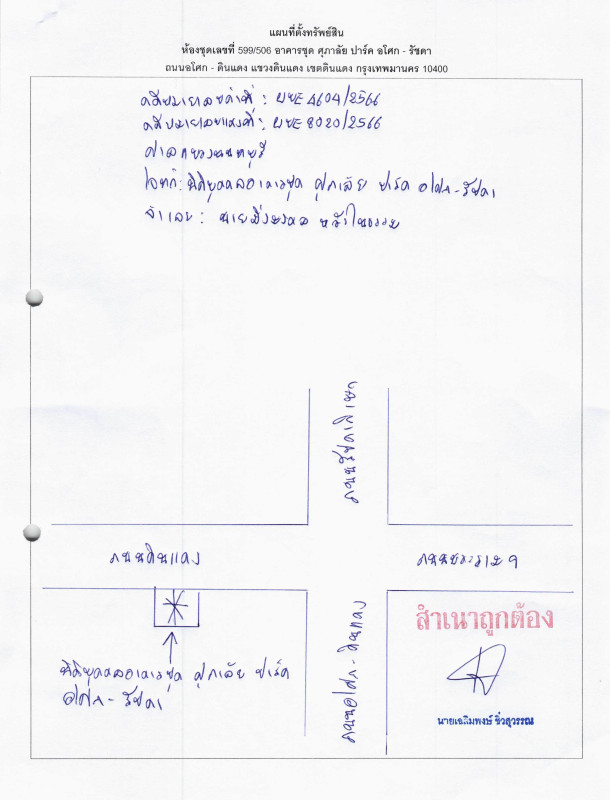 แผนที่ตั้งทรัพย์สิน
ห้องชุดเลขที่ 599/506 อาคารชุด ศุภาลัย ปาร์ค อโศก - รัชดา
ถนนอโศก - ดินแดง แขวงดินแดง เขตดินแดง กรุงเทพมหานคร 10400
คดีหมายเลขดำที่ : ผบE 4604/2566
คดีหมายเลขแดงที่ : ผบE 8020/2566
ศาลแขวงนนทบุรี
โจทก์ : นิติบุคคลอาคารชุด ศุภาลัย ปาร์ค อโศก - รัชดา
จำเลย : นาย
ถนนรัชดาภิเษก
ถนนดินแดง
ถนนพระราม 9
สำเนาถูกต้อง
นิติบุคคลอาคารชุด ศุภาลัย ปาร์ค
อโศก - รัชดา
ถนนอโศก - ดินแดง
นายเฉลิมพงษ์ ขิ่วสุวรรณ